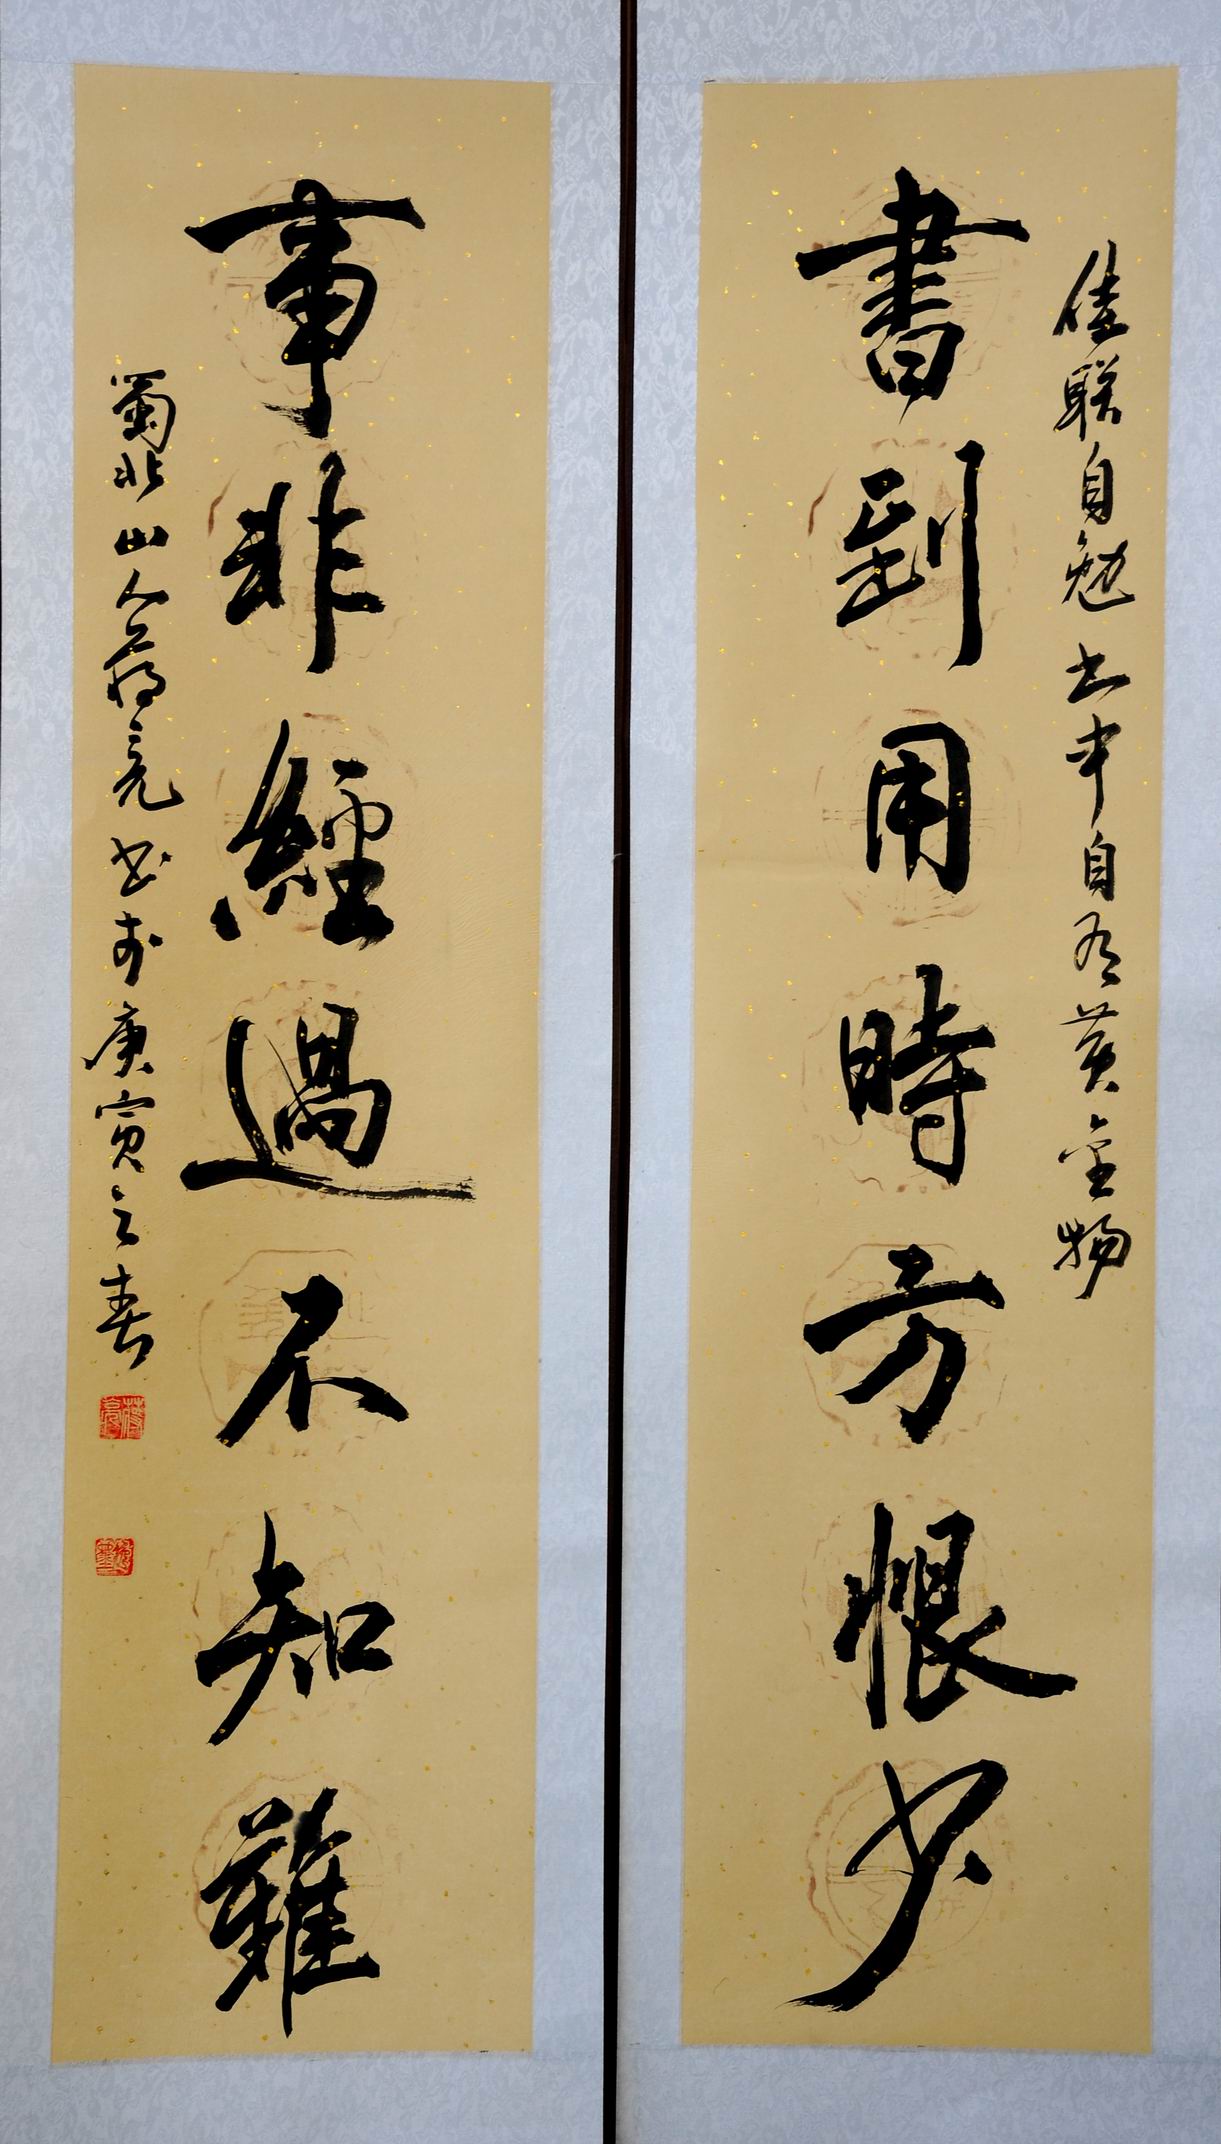 佳联自勉书中自有黄金物
書到用時方恨少
事非經過不知難
蜀北山人蒋亮书于庚寅之春